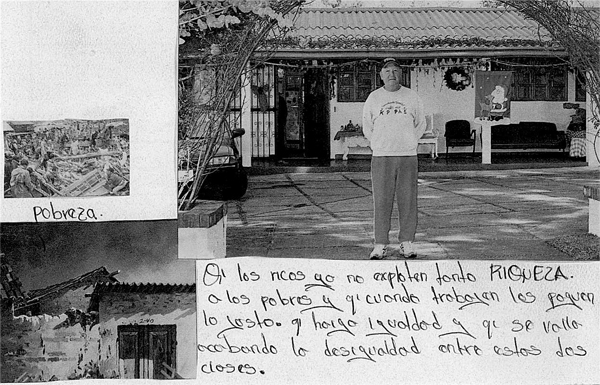 pobreza.
RIQUEZA.
Qi los ricos ya no exploten tanto
a los pobres y qi cuando trabajen les paguen
lo justo. qi haiga igualdad y qi se valla
acabando la desigualdad entre estas dos
clases.